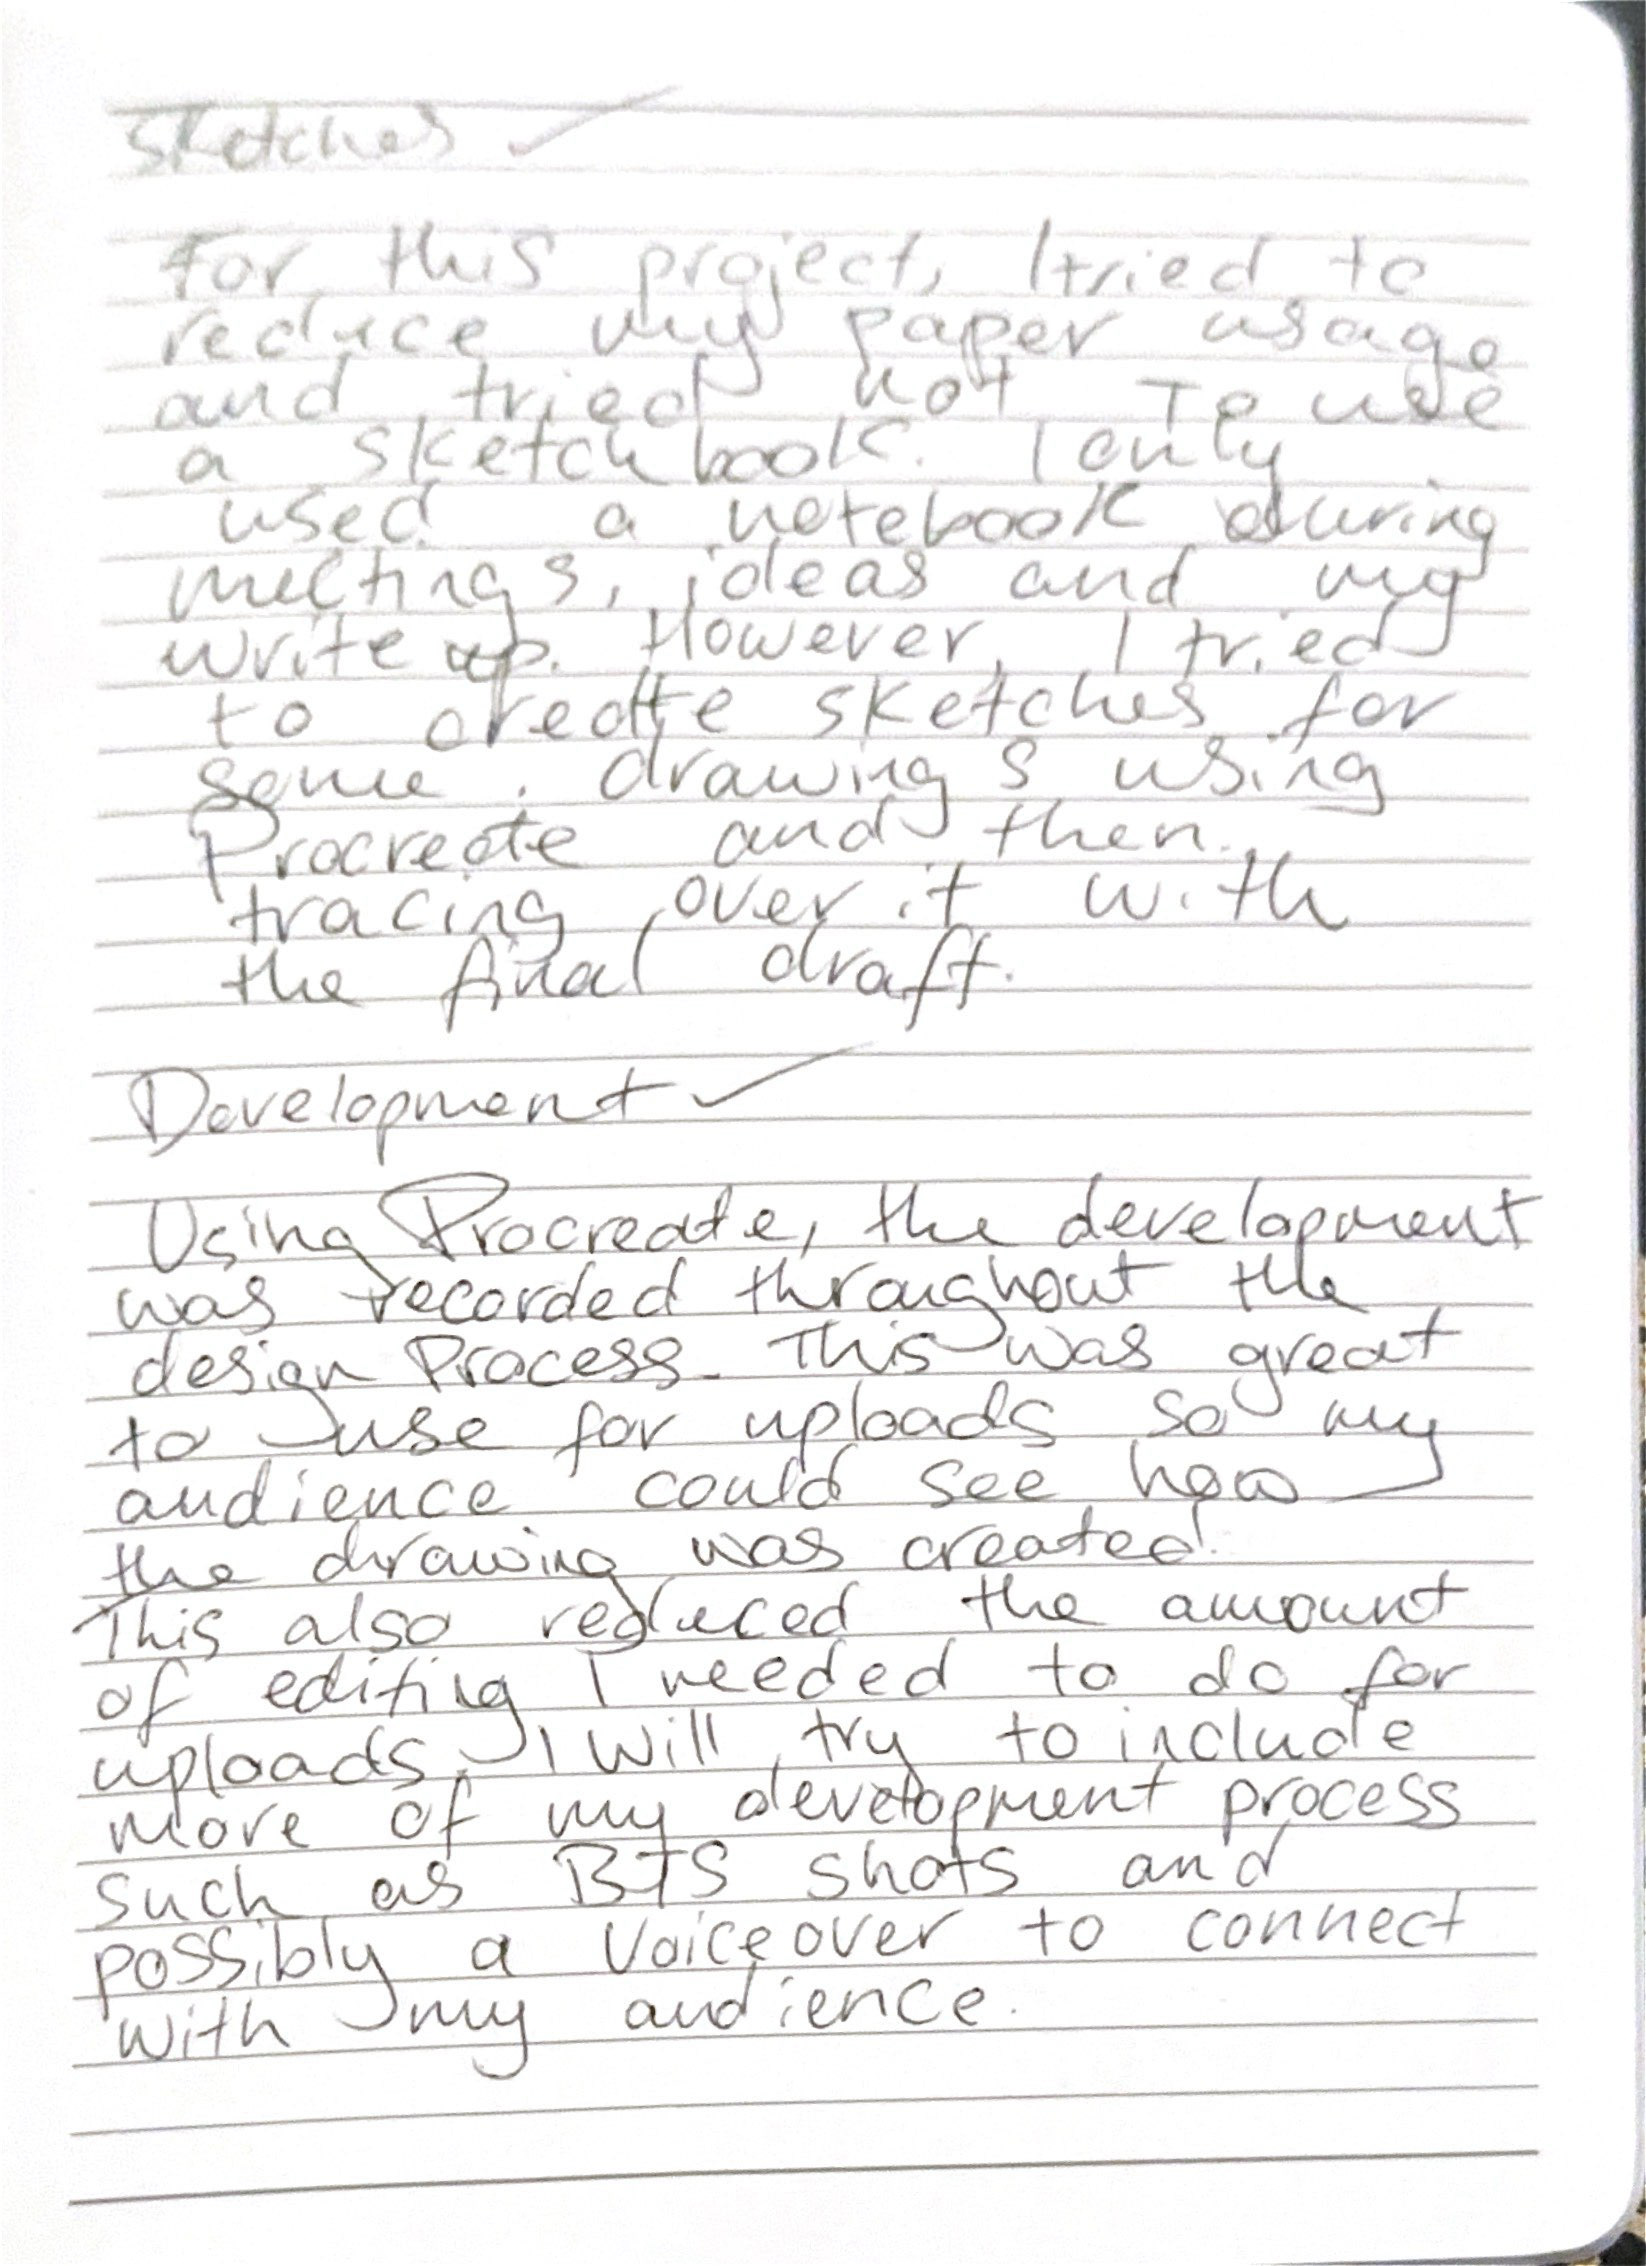 Sketches ✓
For this project, I tried to
reduce my paper usage
and tried not to use
a sketchbook. I only
used a notebook during
meetings, ideas and my
write up. However, I tried
to create sketches for
some drawings using
Procreate and then
tracing over it with
the final draft.
Development ✓
Using Procreate, the development
was recorded throughout the
design Process. This was great
to use for uploads so my
audience could see how
the drawing was created.
This also reduced the amount
of editing I needed to do for
uploads. I will try to include
more of my development process
such as BTS shots and
possibly a voiceover to connect
with my audience.